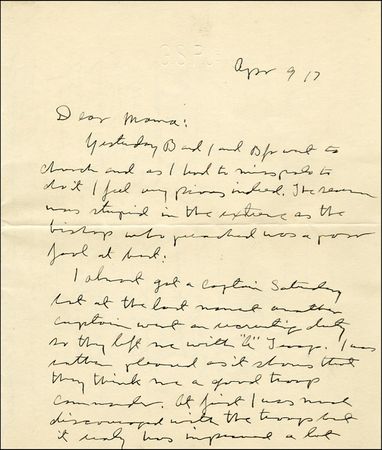 Apr 9 17
Dear Mama:
Yesterday B and I and B Jr went to
church and as I had to miss polo to
do it I feel very pious indeed. The sermon
was stupid in the extreme as the
bishop who preached was a poor
fool at best.
I almost got a Captain Saturday
but at the last moment another
captain went on recruiting duty
so they left me with "A" Troop. I was
rather pleased as it shows that
they think me a good troop
commander. At first I was much
discouraged with the troop but
it realy has improved a lot